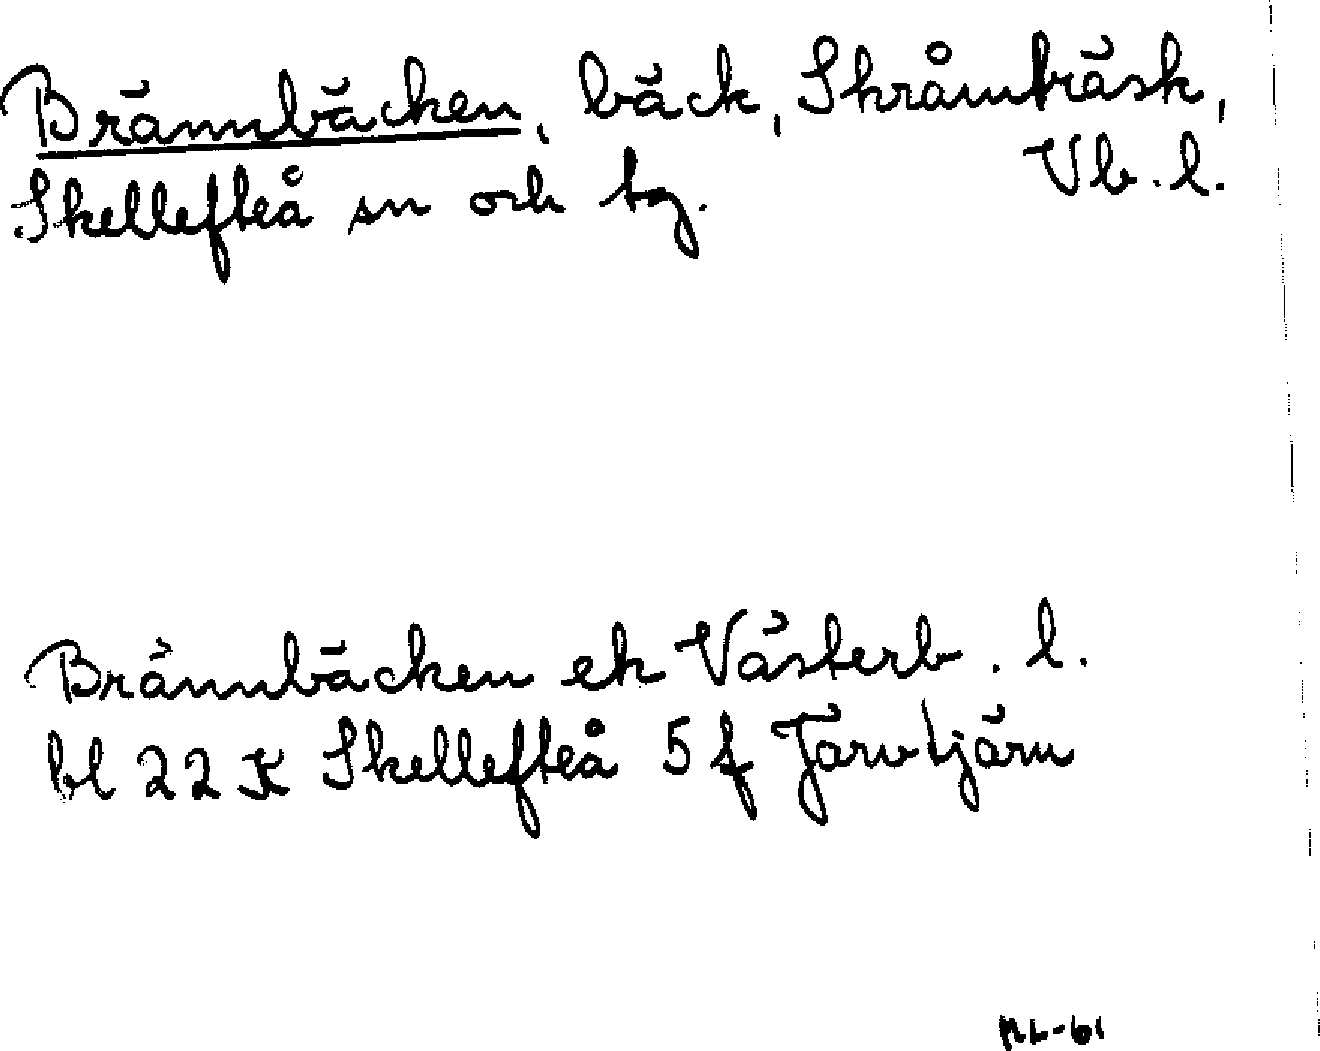 Brännbäcken, bäck, Skråmträsk,
Skellefteå sn och tg. Vb. l.
Brännbäcken ek Västerb. l.
bl 22 K Skellefteå 5 f Järvtjärn